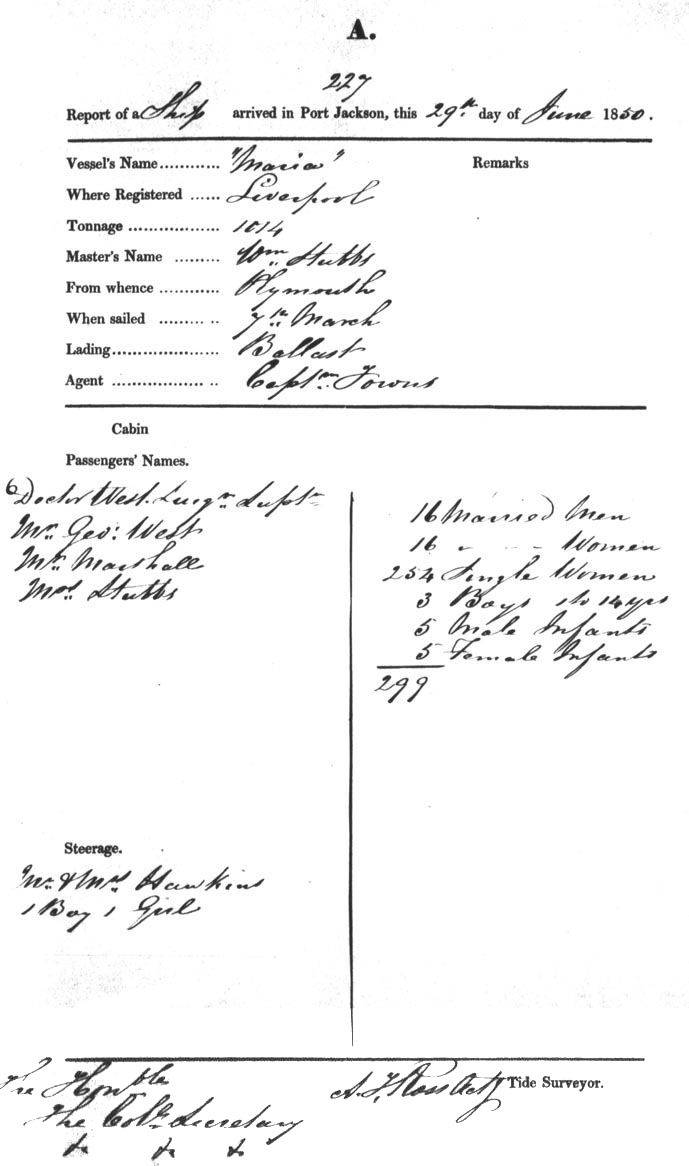 A.
227
Report of a Ship arrived in Port Jackson, this 29th day of June 1850.
Vessel's Name............ "Maria" Remarks
Where Registered ...... Liverpool
Tonnage .................. 1014
Master's Name ......... Wm Stubbs
From whence ............ Plymouth
When sailed ......... .. 7th March
Lading..................... Ballast
Agent .................. .. Captn Towns
Cabin
Passengers' Names.
6
Doctor West. Surgn Suptn
Mr. Geo: West
Mr. Marshall
Mrs Stubbs
16 Married Men
16 " - - Women
254 Single Women
3 Boys 1 to 14 yrs
5 Male Infants
5 Female Infants
299
Steerage.
Mr. & Mrs Hawkins
1 Boy 1 Girl
The Honble
The Coll. Secretary
& & &
A. Ross Actg Tide Surveyor.